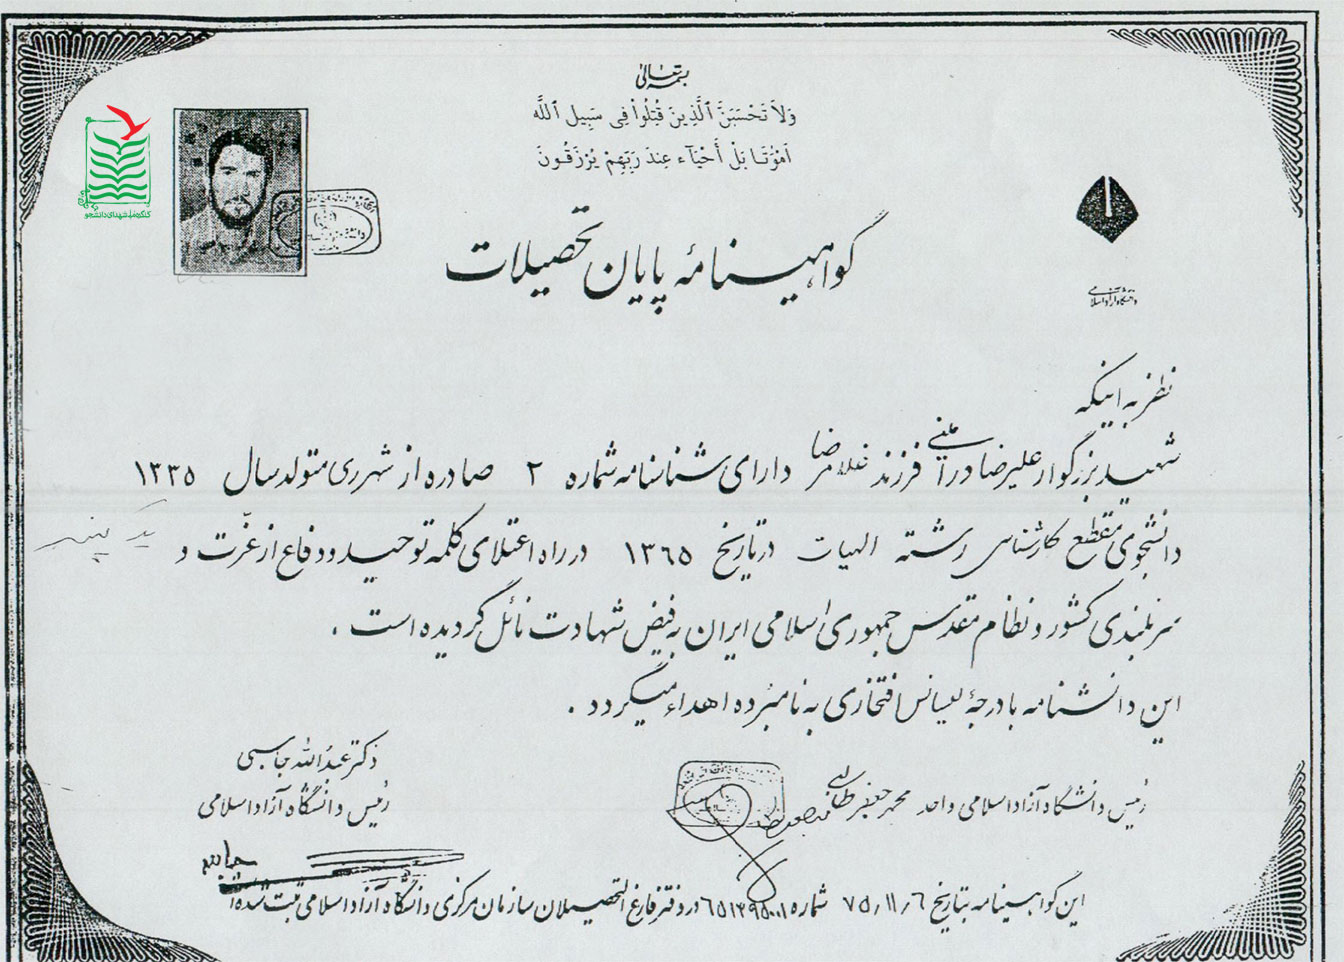 بسمه تعالی
وَلَا تَحْسَبَنَّ ٱلَّذِینَ قُتِلُوا۟ فِی سَبِیلِ ٱللَّه
اَمْوَٰتَا بَلْ أَحْیَآء عِندَ رَبِّهِمْ یُرْزَقُونَ
کنگره ملی شهدای دانشجو
گواهینامهٔ پایان تحصیلات
دانشگاه آزاد اسلامی
نظر به اینکه
شهید بزرگوار علیرضا درامینی فرزند غلامرضا دارای شناسنامه شماره ۲ صادره از شهرری متولد سال ۱۳۳۵
دانشجوی مقطع کارشناسی رشته الهیات در تاریخ ۱۳۶۵ در راه اعتلای کلمه توحید و دفاع از عزّت و
سربلندی کشور و نظام مقدس جمهوری اسلامی ایران به فیض شهادت نائل گردیده است .
این دانشنامه با درجهٔ لیسانس افتخاری به نامبرده اهداء میگردد .
رئیس دانشگاه آزاد اسلامی واحد محمد جعفر
دکتر عبدالله جاسبی
رئیس دانشگاه آزاد اسلامی
این گواهینامه بتاریخ ۷۵٫۱۱٫۶ شماره در دفتر فارغ التحصیلان سازمان مرکزی دانشگاه آزاد اسلامی ثبت شده است